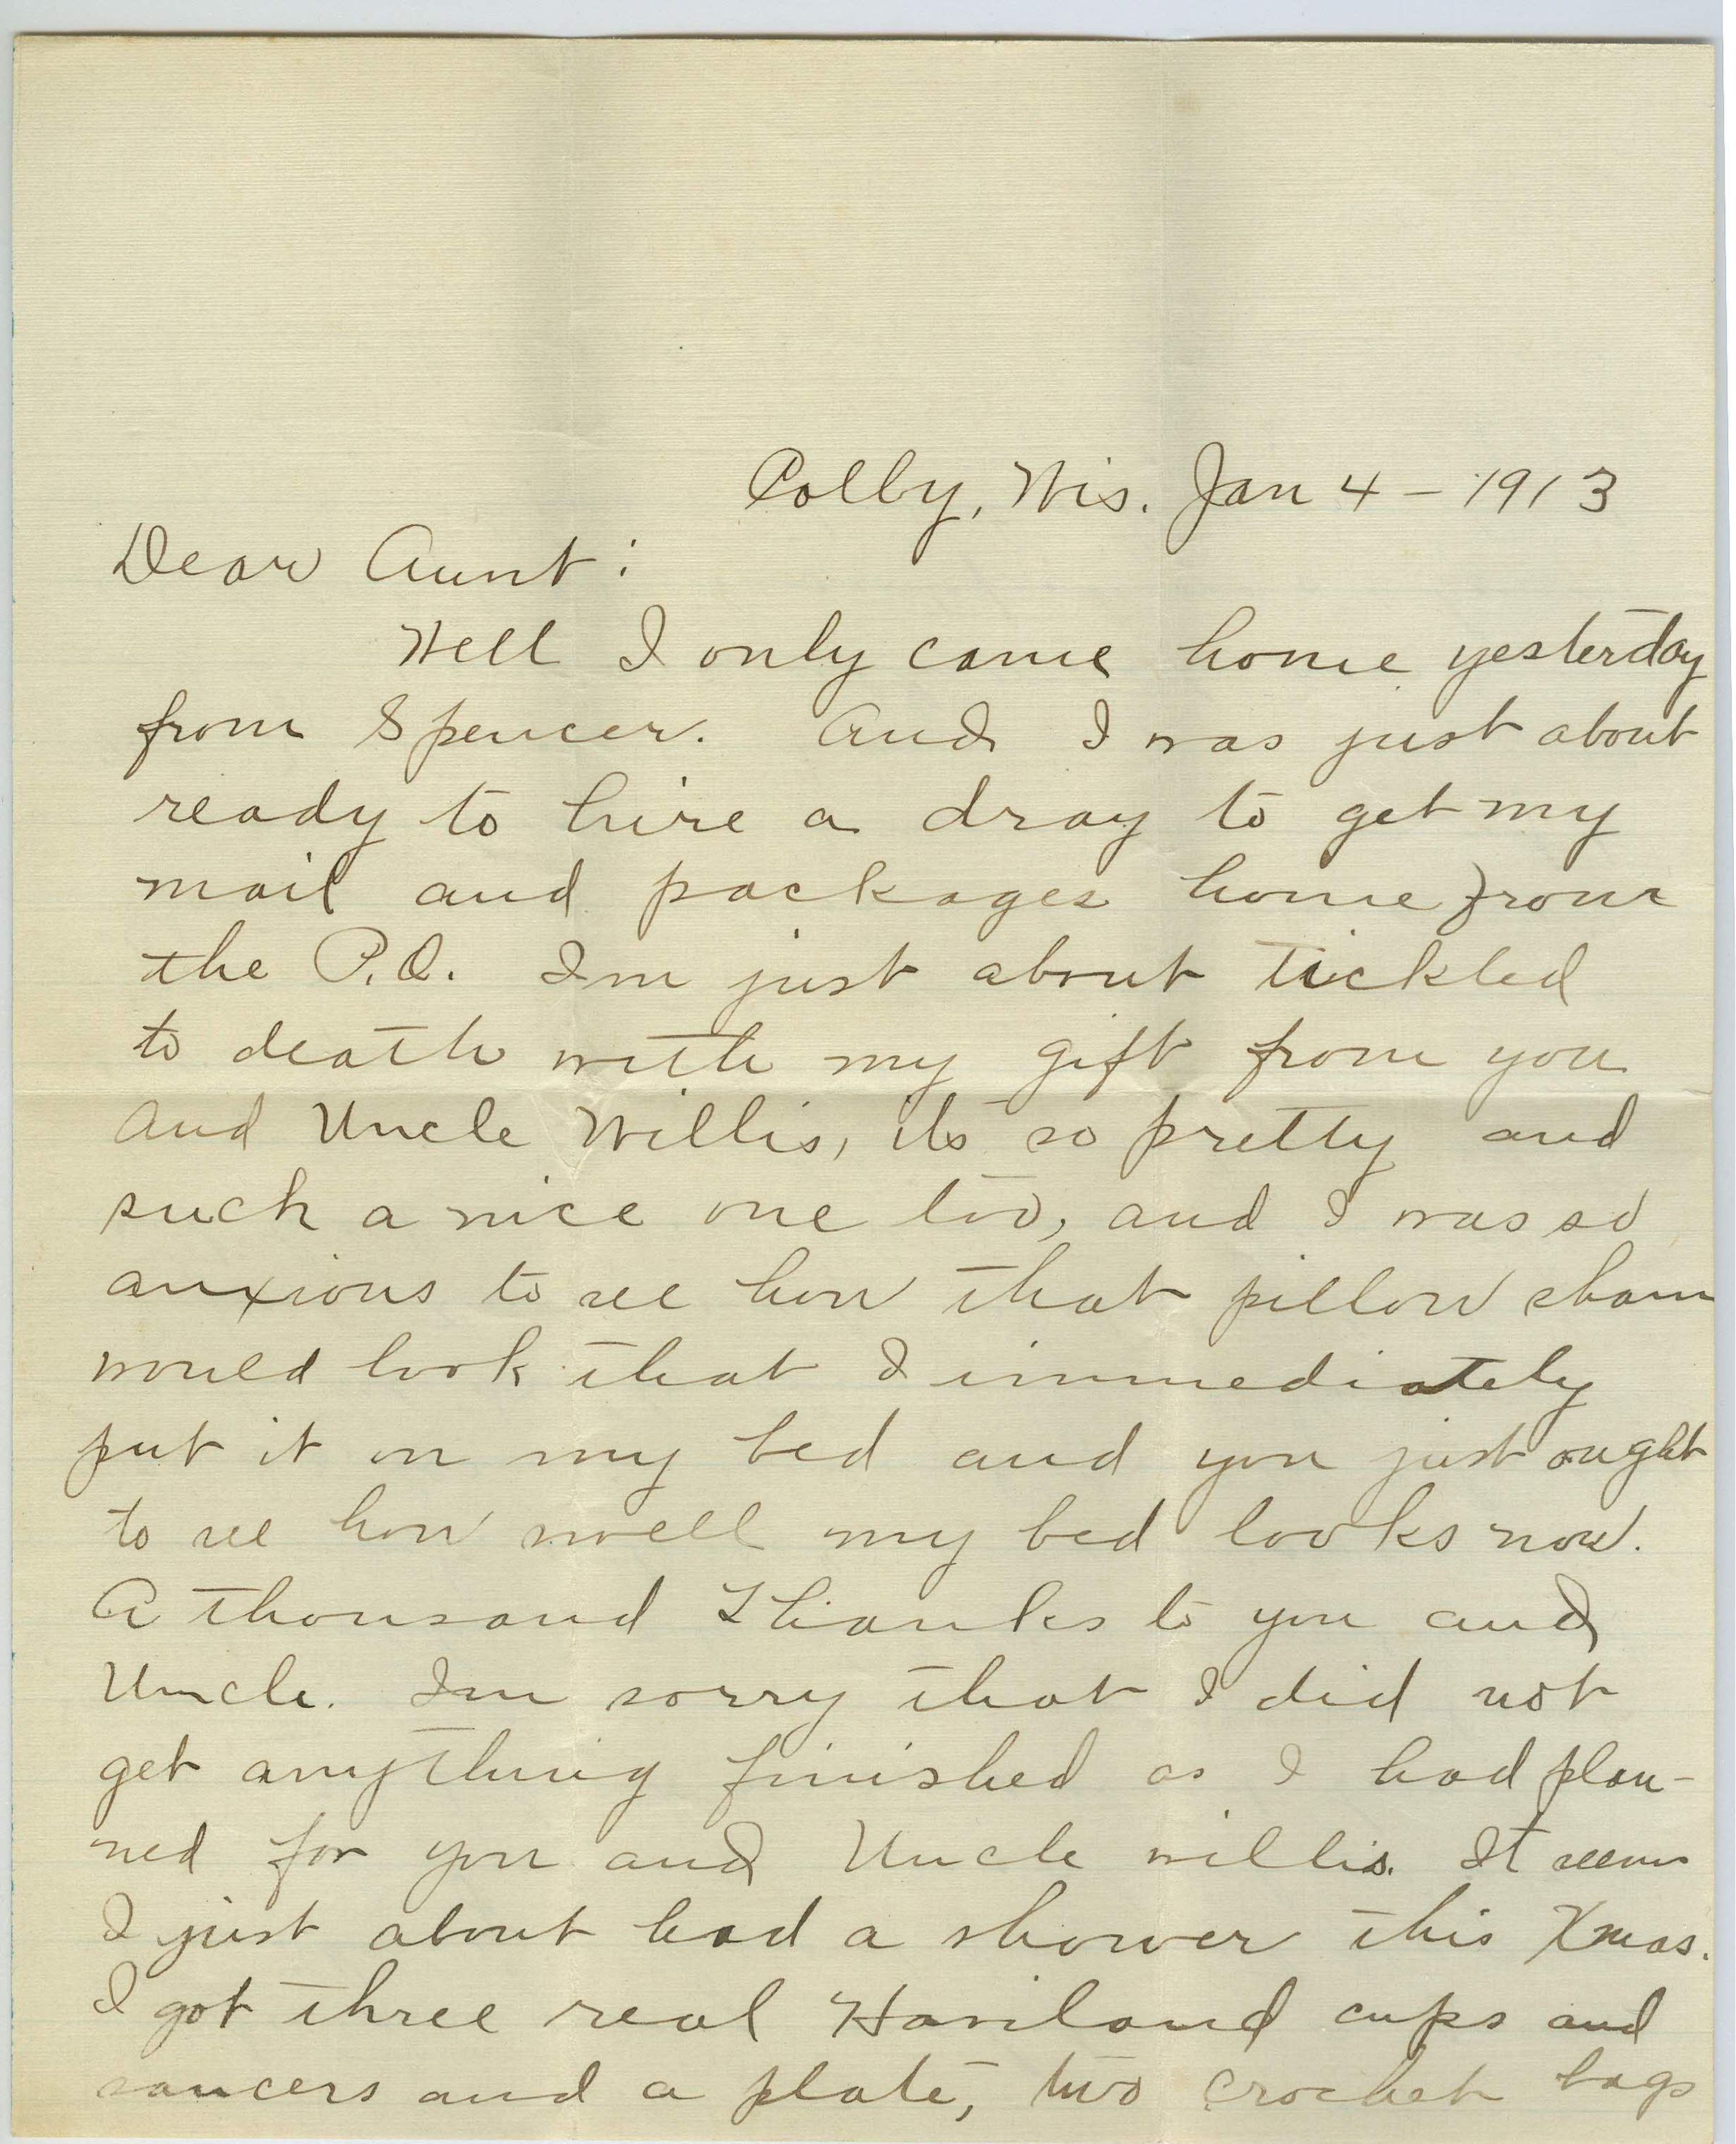 Colby, Wis. Jan 4 - 1913
Dear Aunt:
Well I only came home yesterday
from Spencer. And I was just about
ready to hire a dray to get my
mail and packages home from
the P.O. Im just about tickled
to death with my gift from you
and Uncle Willis, its so pretty and
such a nice one too, and I was so
anxious to see how that pillow sham
would look that I immediately
put it on my bed and you just ought
to see how swell my bed looks now.
A thousand Thanks to you and
Uncle. Im sorry that I did not
get anything finished as I had plan-
ned for you and Uncle Willis. It seems
I just about had a shower this Xmas.
I got three real Haviland cups and
saucers and a plate, two crochet bags